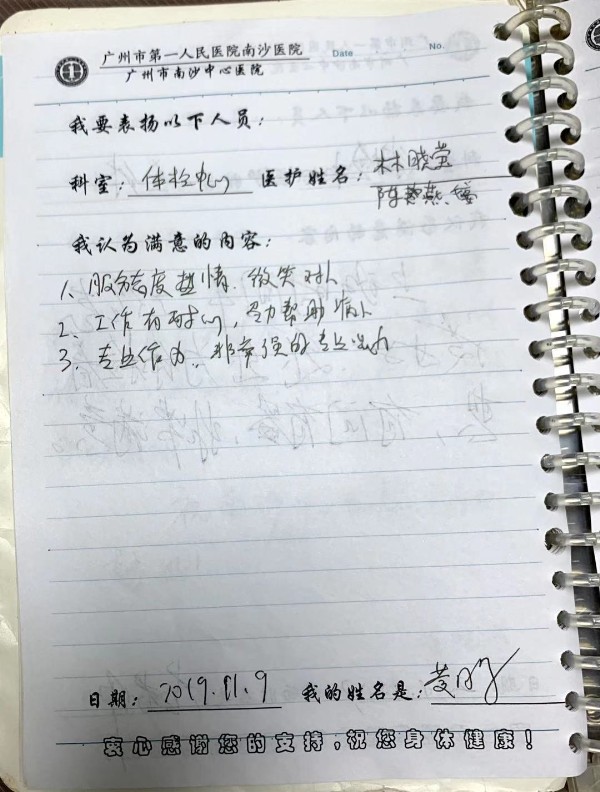 广州市第一人民医院南沙医院 Date No.
广州市南沙中心医院
我要表扬以下人员：
科室：体检中心 医护姓名：林晓莹
陈燕
我认为满意的内容：
1、服务态度热情、微笑对人
2、工作有耐心，尽力帮助病人
3、专业能力、非常强的专业
日期：2019.11.9 我的姓名是：
衷心感谢您的支持，祝您身体健康！